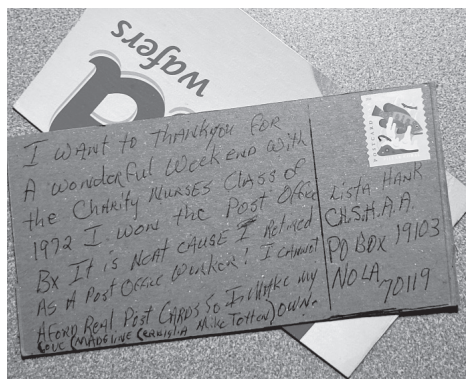 wafers
I WANT to THANKyou FOR
A wonderful Weekend With
the CHARITY NURSES CLASS OF
1972 I WON the POST OFFICE
BX It is NEAT CAUSE I Retired
AS A POST Office Worker! I CANNOT
AFORD Real POST CARDS SO I MAKE my
LOVE (MADELINE Mike Totten) OWN.
LISTA HANK
C.H.S.H.A.A.
PO BOX 19103
NOLA
70119